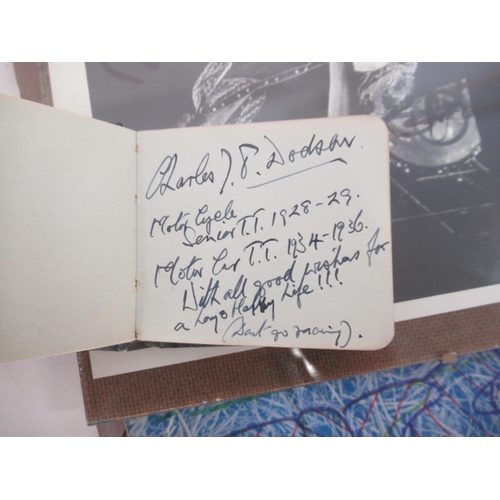 Charles J. P. Dodson.
Motor Cycle
Senior T.T. 1928-29.
Motor Car T.T. 1934-1936.
With all good wishes for
a Long & Happy Life!!!
(Don't go racing).